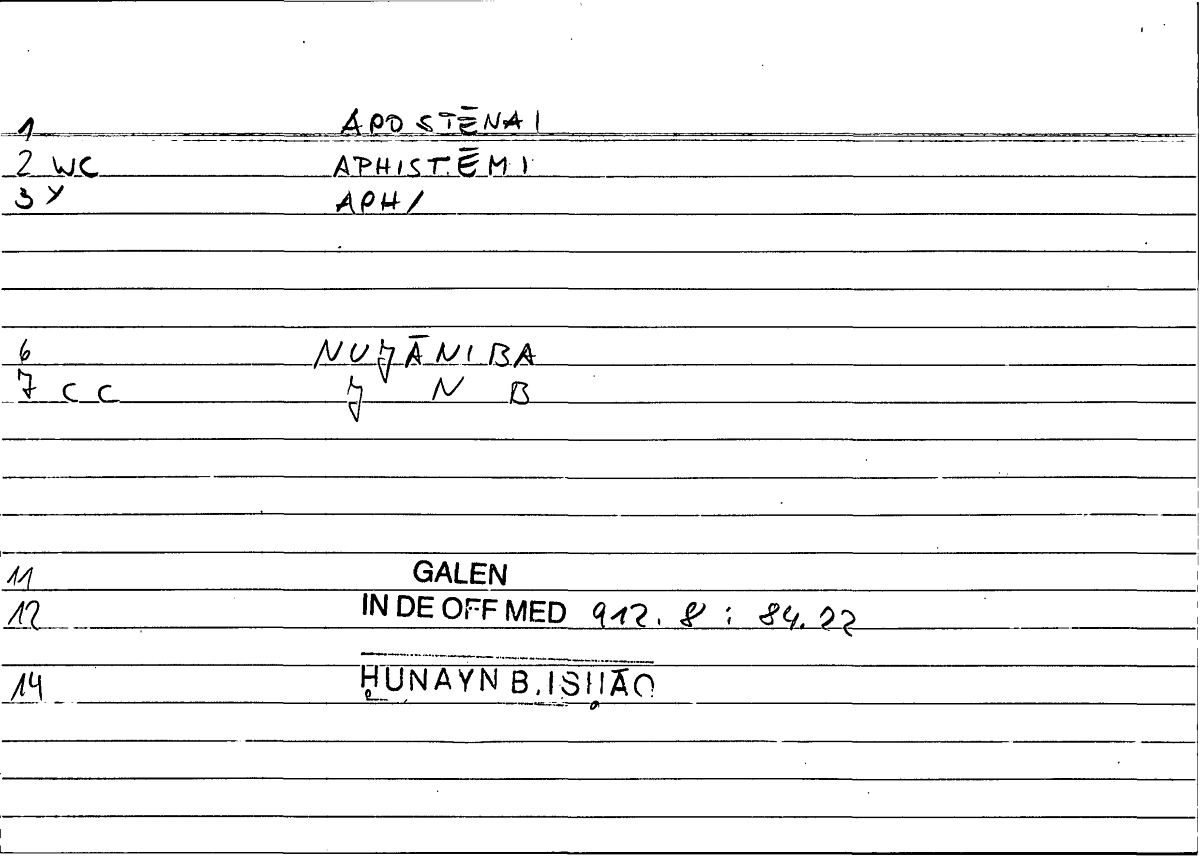 1 APOSTĒNAI
2 WC APHISTĒMI
3 Y APH/
6 NUǦĀNIBA
7 CC Ǧ N B
11 GALEN
12 IN DE OFF MED 912.8 : 84.22
14 ḤUNAYN B. ISḤĀQ